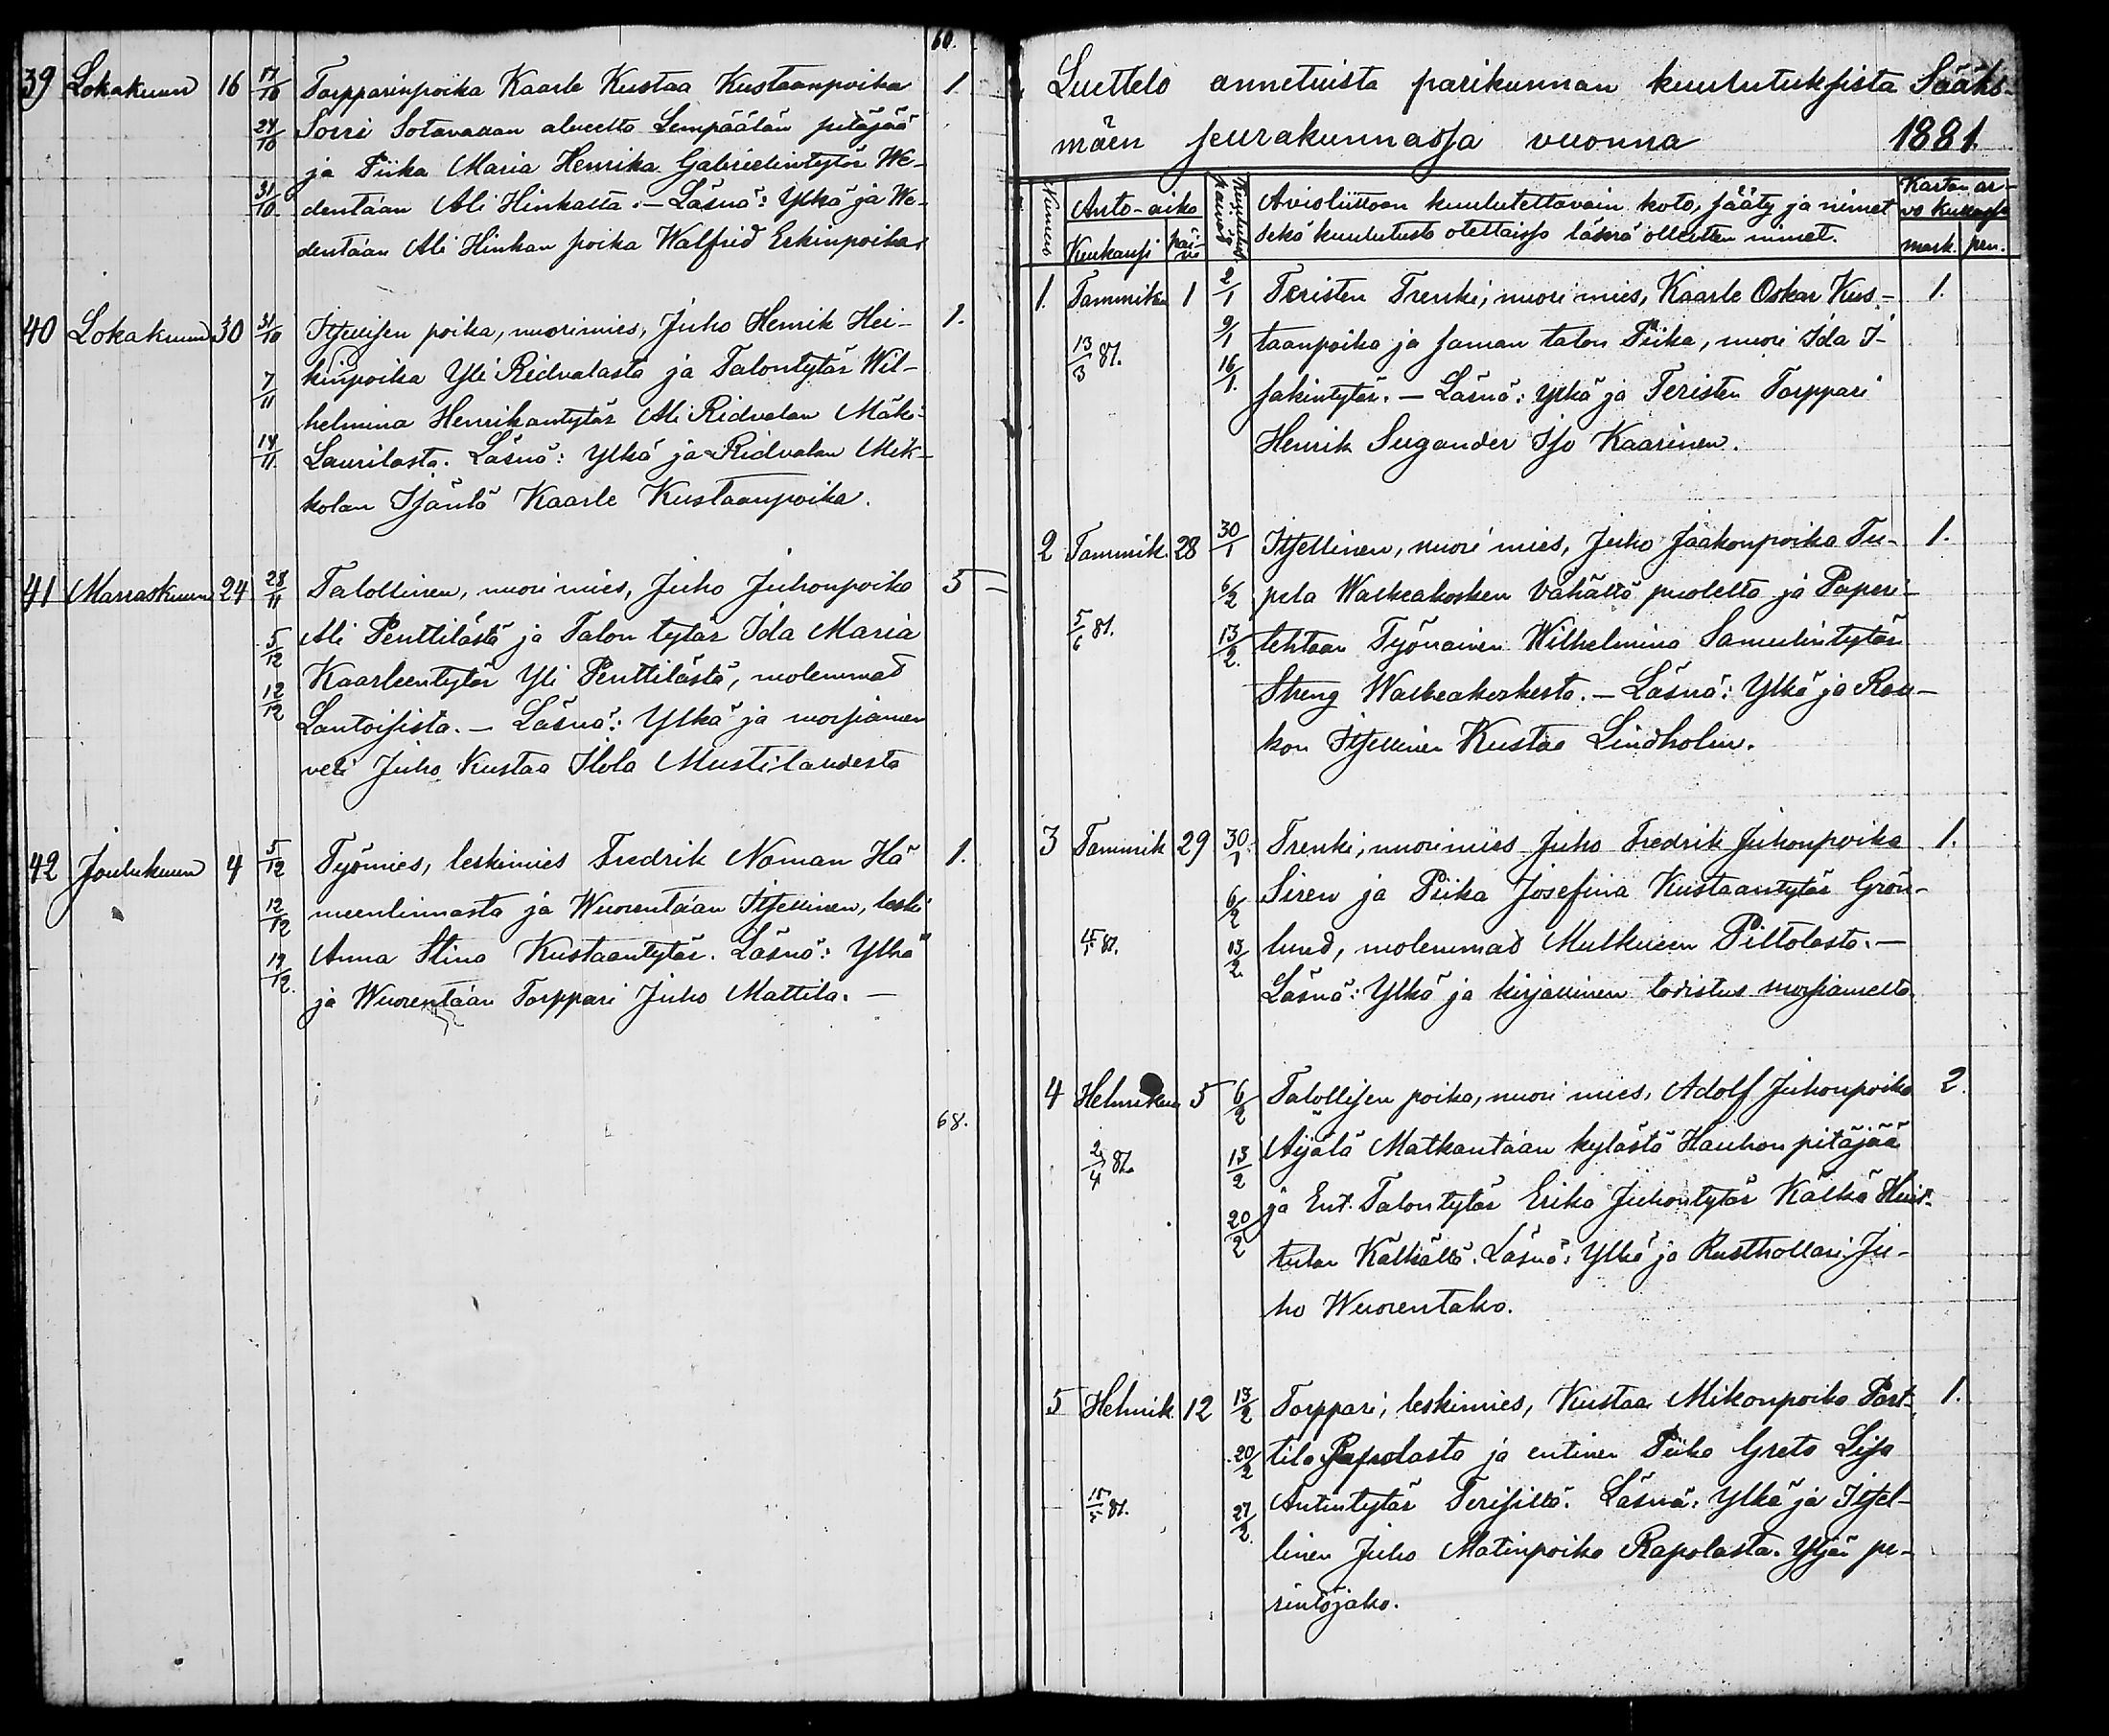 60.
39 Lokakuun 16 17/10 Torpparinpoika Kaarle Kustaa Kustaanpoika 1.
24/10 Sorri Sotavallan alveelta Lempäälän pitäjää
ja Piika Maria Henrika Gabrielintytär We-
31/10 dentaan Ali Hinkalta. — Läsnä: Ylkä ja We-
dentaan Ali Hinkan poika Walfrid Erkinpoika
40 Lokakuun 30 31/10 Itsellisen poika, nuorimies, Juho Henrik Hei- 1.
kinpoika Yli Ridvalasta ja Talontytär Wil-
7/11 helmina Henrikantytär Ali Ridvalan Mäki-
14/11 Laurilasta. Läsnä: Ylkä ja Ridvalan Mik-
kolan Isäntä Kaarle Kustaanpoika.
41 Marraskuun 24 28/11 Talollinen, nuori mies, Juho Juhonpoika 5 —
5/12 Ali Penttilästä ja Talon tytär Ida Maria
12/12 Kaarleentytär Yli Penttilästä, molemmad
Lantoisista. — Läsnä: Ylkä ja morsiamen
veli Juho Kustaa Ilola Mustilaudesta
42 Joulukuun 4 5/12 Työmies, leskimies Fredrik Noman Hä 1.
12/12 meenlinnasta ja Wuorentaan Itsellinen, leski
19/12. Anna Stina Kustaantytär. Läsnä: Ylkä
ja Wuorentaan Torppari Juho Mattila. —
68.
Luettelo annetuista parikunnan kuulutuksista Sääks-
mäen seurakunnassa vuonna 1881.
Numero Anto-aika Kuukausi päivä
Avioliittoon kuulutettavain koto, sääty ja nimet
sekä kuulutusta otettaissa läsnä olleitten nimet.
Kartan ar-
vo kullassa
mark. pen.
1. Tammikuu 1 2/1 Teristen Trenki, nuori mies, Kaarle Oskar Kus- 1.
13/3 81. 9/1 taanpoika ja saman talon Piika, nuori Ida I-
16/1. sakintytär. — Läsnä: Ylkä ja Teristen Torppari
Henrik Seegander Iso Kaarinen.
2 Tammik. 28 30/1 Itsellinen, nuori mies, Juho Jaakonpoika Tu- 1.
6/2 pela Walkeakosken Vähältä puolelta ja Paperi-
5/6 81. 13/2. tehtaan Työnainen Wilhelmina Samuelintytär
Streng Walkeakoskesta. — Läsnä: Ylkä ja Rau-
kon Itsellinen Kustaa Lindholm.
3 Tammik 29 30/1 Trenki, nuori mies Juho Fredrik Juhonpoika 1.
6/2 Siren ja Piika Josefina Kustaantytär Grön-
13/2. lund, molemmad Mulkuen Piltolasta. —
Läsnä: Ylkä ja kirjallinen todistus morsiamelta.
4 Helmikuu 5 6/2 Talollisen poika, nuori mies, Adolf Juhonpoika 2.
2/4 81. 13/2 Äijälä Matkantaan kylästä Hauhon pitäjää
20/2 ja Ent. Talontytär Erika Juhontytär Kälkä Huit-
tulan Kälkältä. Läsnä: Ylkä ja Rusthollari Ju-
ho Wuorentako.
5 Helmik. 12 13/2 Torppari, leskimies, Kustaa Mikonpoika Part- 1.
20/2 tila Rapolasta ja entinen Piika Greta Lisa
81. 27/2. Antintytär Terisiltä. Läsnä: Ylkä ja Itsel-
linen Juho Matinpoika Rapolasta. Yljän pe-
rintöjako.